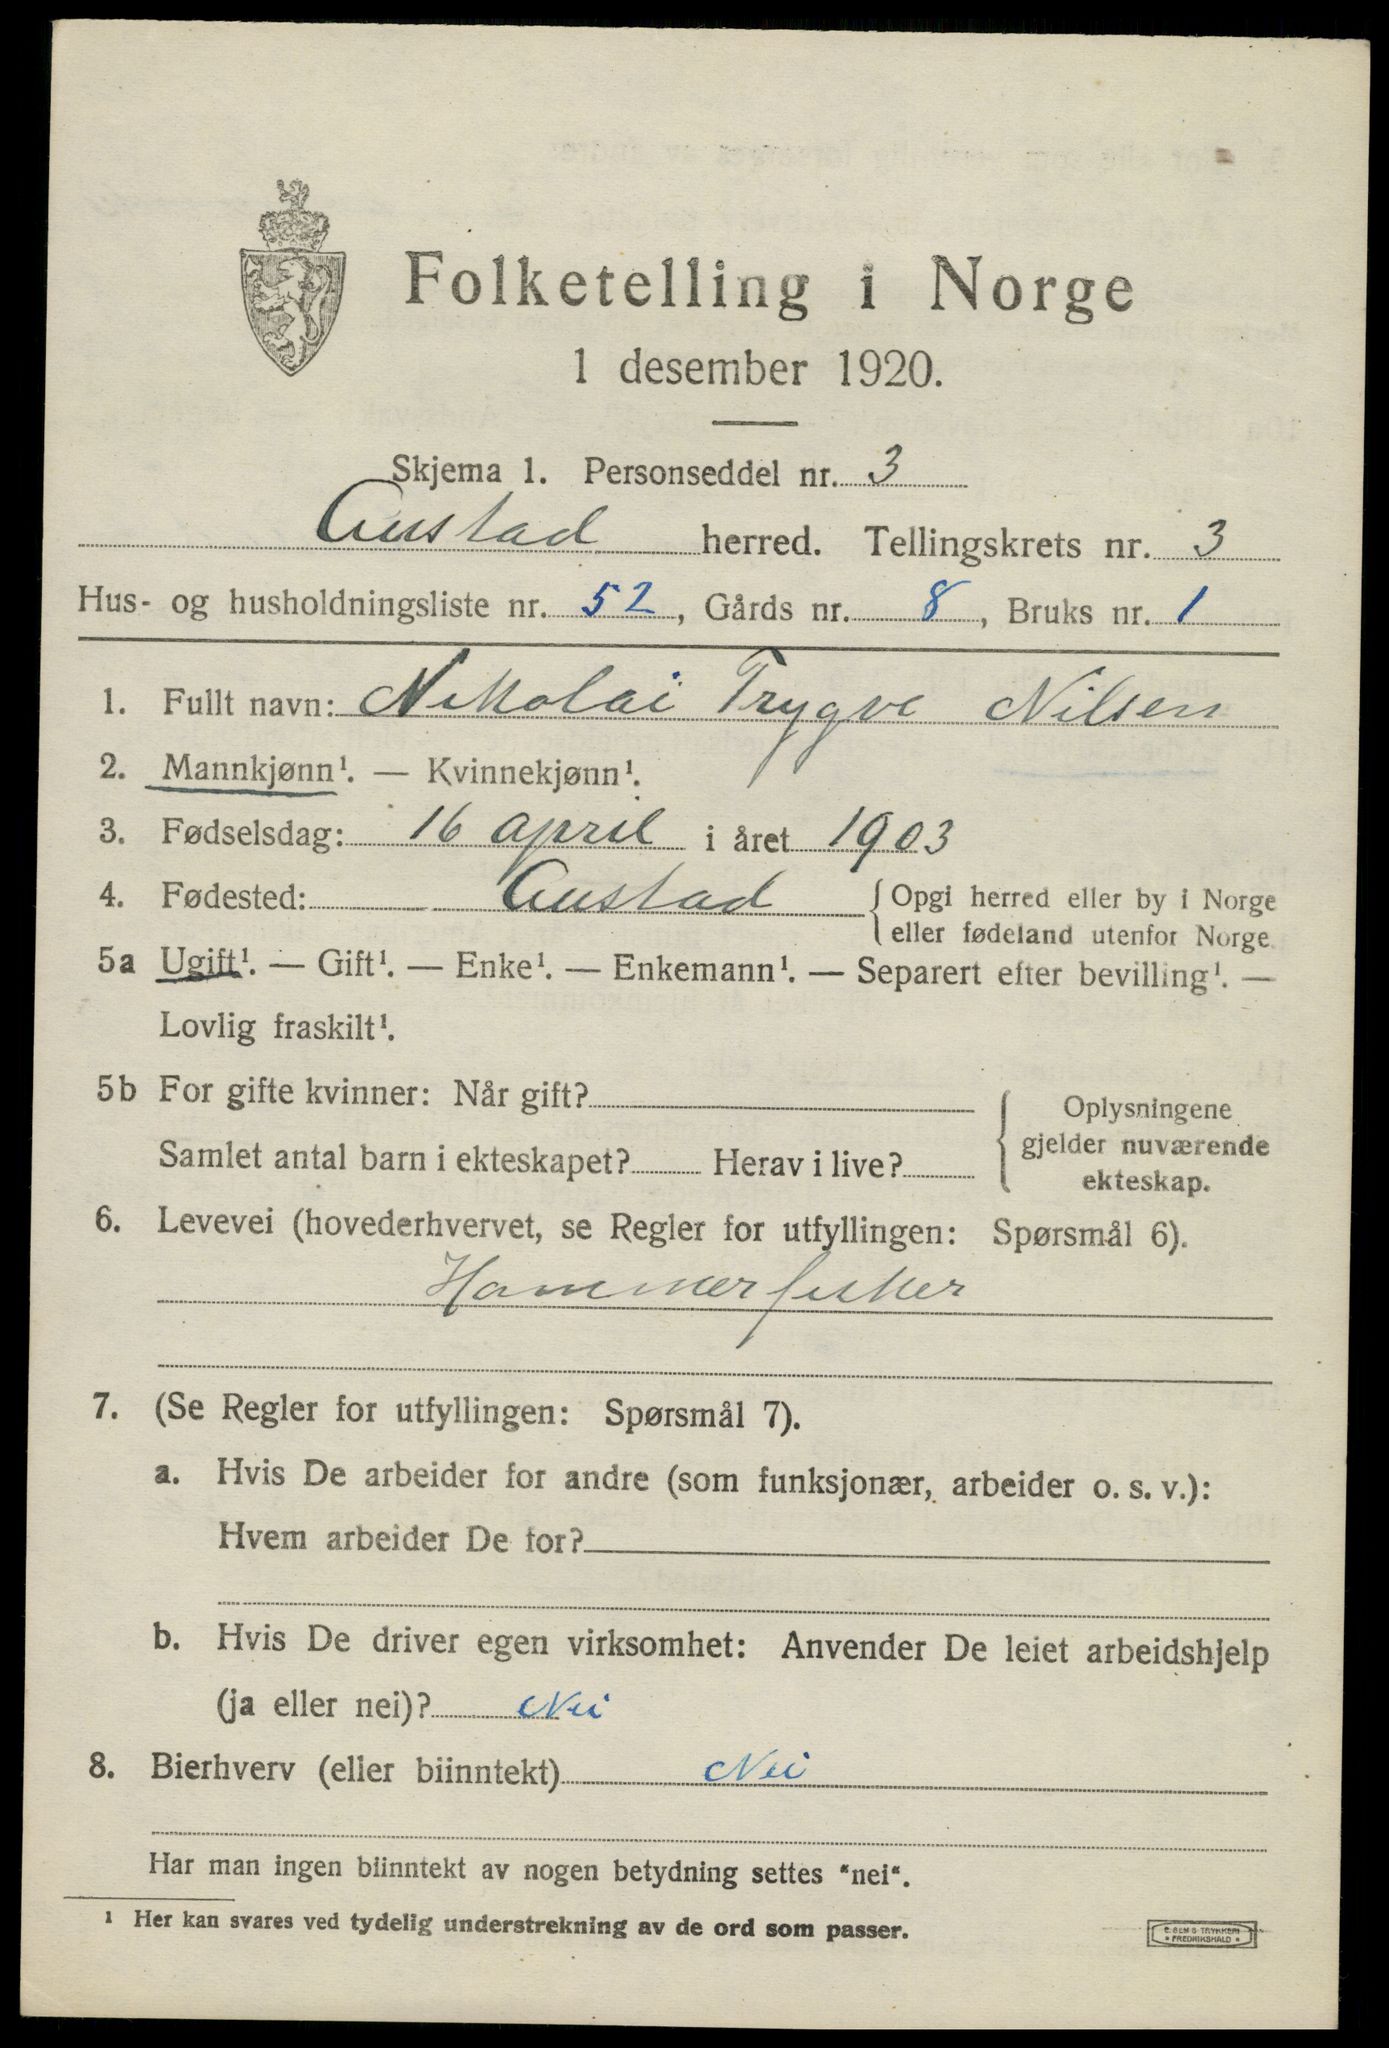 Folketelling i Norge
1 desember 1920.
Skjema 1. Personseddel nr. 3
Austad herred. Tellingskrets nr. 3
Hus- og husholdningsliste nr. 52, Gårds nr. 8, Bruks nr. 1
1. Fullt navn: Nikolai Trygve Nilsen
2. Mannkjønn¹. — Kvinnekjønn¹.
3. Fødselsdag: 16 april i året 1903
4. Fødested: Austad { Opgi herred eller by i Norge
eller fødeland utenfor Norge
5a Ugift¹. — Gift¹. — Enke¹. — Enkemann¹. — Separert efter bevilling¹. —
Lovlig fraskilt¹.
5b For gifte kvinner: Når gift?
Samlet antal barn i ekteskapet? Herav i live?
Oplysningene
gjelder nuværende
ekteskap.
6. Levevei (hovederhvervet, se Regler for utfyllingen: Spørsmål 6).
Hommerfisker
7. (Se Regler for utfyllingen: Spørsmål 7).
a. Hvis De arbeider for andre (som funksjonær, arbeider o. s. v.):
Hvem arbeider De for?
b. Hvis De driver egen virksomhet: Anvender De leiet arbeidshjelp
(ja eller nei)? Nei
8. Bierhverv (eller biinntekt) Nei
Har man ingen biinntekt av nogen betydning settes "nei".
¹ Her kan svares ved tydelig understrekning av de ord som passer.
E. SEMS TRYKKERI
* FREDRIKSHALD *